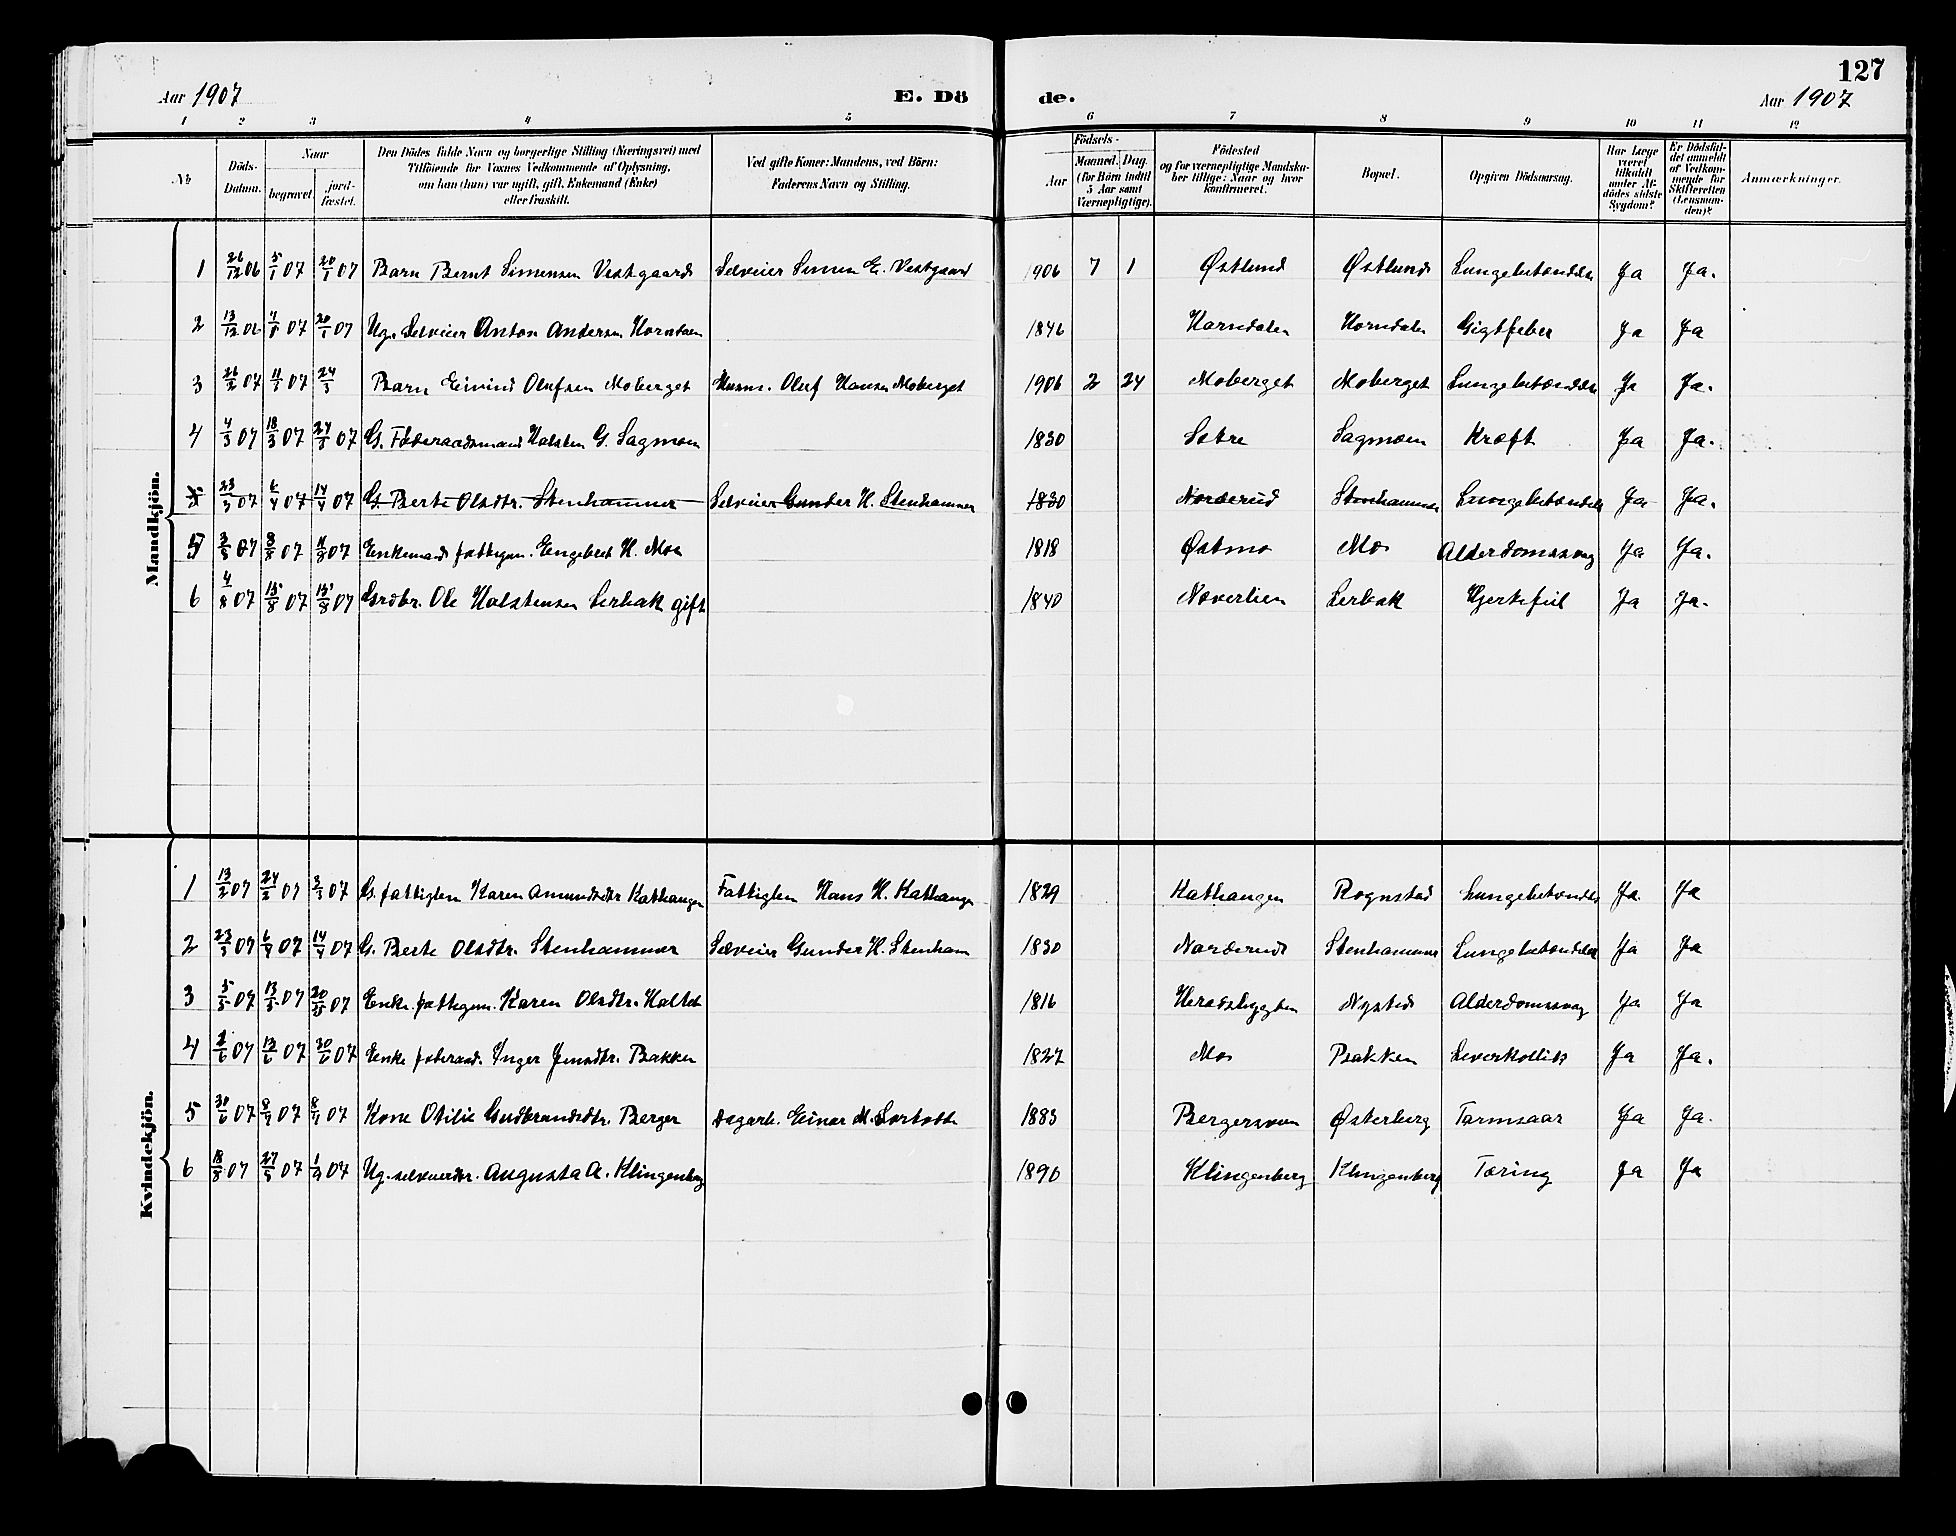 127
Aar 1907 E. Dö de. Aar 1907
1 2 3 4 5 6 7 8 9 10 11 12
№ Döds-Datum. Naar begravet. jord-fæstet. Den Dödes fulde Navn og borgerlige Stilling (Næringsvei) med Tilföiende for Voxnes Vedkommende af Oplysning, om han (hun) var ugift, gift, Enkemand (Enke) eller fraskilt. Ved gifte Koner: Mandens, ved Börn: Faderens Navn og Stilling. Födsels- Aar Maaned. Dag. (for Börn indtil 5 Aar samt Værnepligtige). Födested og for værnepligtige Mandskaber tillige: Naar og hvor konfirmeret. Bopæl. Opgiven Dödsaarsag. Har Læge været tilkaldt under Afdödes sidste Sygdom? Er Dödsfaldet anmeldt af Vedkommende for Skifteretten (Lensmanden)? Anmærkninger.
Mandkjön.
1 26/12 06 5/1 07 20/1 07 Barn Bernt Simensen Vestgaard Selveier Simen E. Vestgaard 1906 7 1 Østlund Østlund Lungebetændelse Ja Ja.
2 13/12 06 07 20/1 07 Ug. Selveier Anton Andersen Horndalen 1846 Horndalen Horndalen Gigtfeber Ja Ja
3 26/2 07 11/3 07 24/3 Barn Eivind Olufsen Moberget Husm. Oluf Hansen Moberget 1906 2 24 Moberget Moberget Lungebetændelse Ja Ja.
4 4/3 07 18/3 07 24/3 07 G. Föderaadsmand Halsten G. Sagmoen 1830 Sætre Sagmoen Kræft Ja Ja.
5 23/3 07 6/4 07 14/4 07 G. Berte Olsdtr. Stenhammer Selveier Gunder H. Stenhammer 1830 Norderud Stenhammer Lungebetændelse Ja Ja.
5 07 8/8 07 11/8 07 Enkemand fattigem. Engebret H. Moe 1818 Østmo Mo Alderdomssvag Ja Ja.
6 4/8 07 15/8 07 15/8 07 Grdbr. Ole Halstensen Lerbak gift 1840 Noverlien Lerbak Hjertefeil Ja Ja.
Kvindekjön.
1 13/2 07 24/2 07 3/3 07 G. fattiglem Karen Amundsdtr Kathaugen Fattiglem Hans H. Kathaugen 1829 Kathaugen Rognstad Lungebetændelse Ja. Ja
2 23/3 07 6/4 07 14/4 07 G. Berte Olsdtr. Stenhammer Selveier Gunder H. Stenham 1830 Norderud Stenhammer Lungebetændelse Ja Ja
3 5/5 07 13/5 07 20/5 07 Enke. fattigem. Karen Olsdtr. 1816 Heradsbygden Nysted Alderdomssvag Ja Ja
4 07 13/6 07 30/6 07 Enke föderaad. Inger Jensdtr. Bakken 1827 Mo Bakken Ja Ja.
5 30/6 07 07 07 Kone Otilie Gudbrandsdtr. Berger Dagarb. Einar M. 1883 Østerberg Tarmsaar Ja Ja.
6 18/8 07 27/8 07 1/9 07 Ug. selveierdtr. Augusta A. Klingenberg 1890 Klingenberg Klingenberg Tæring Ja Ja